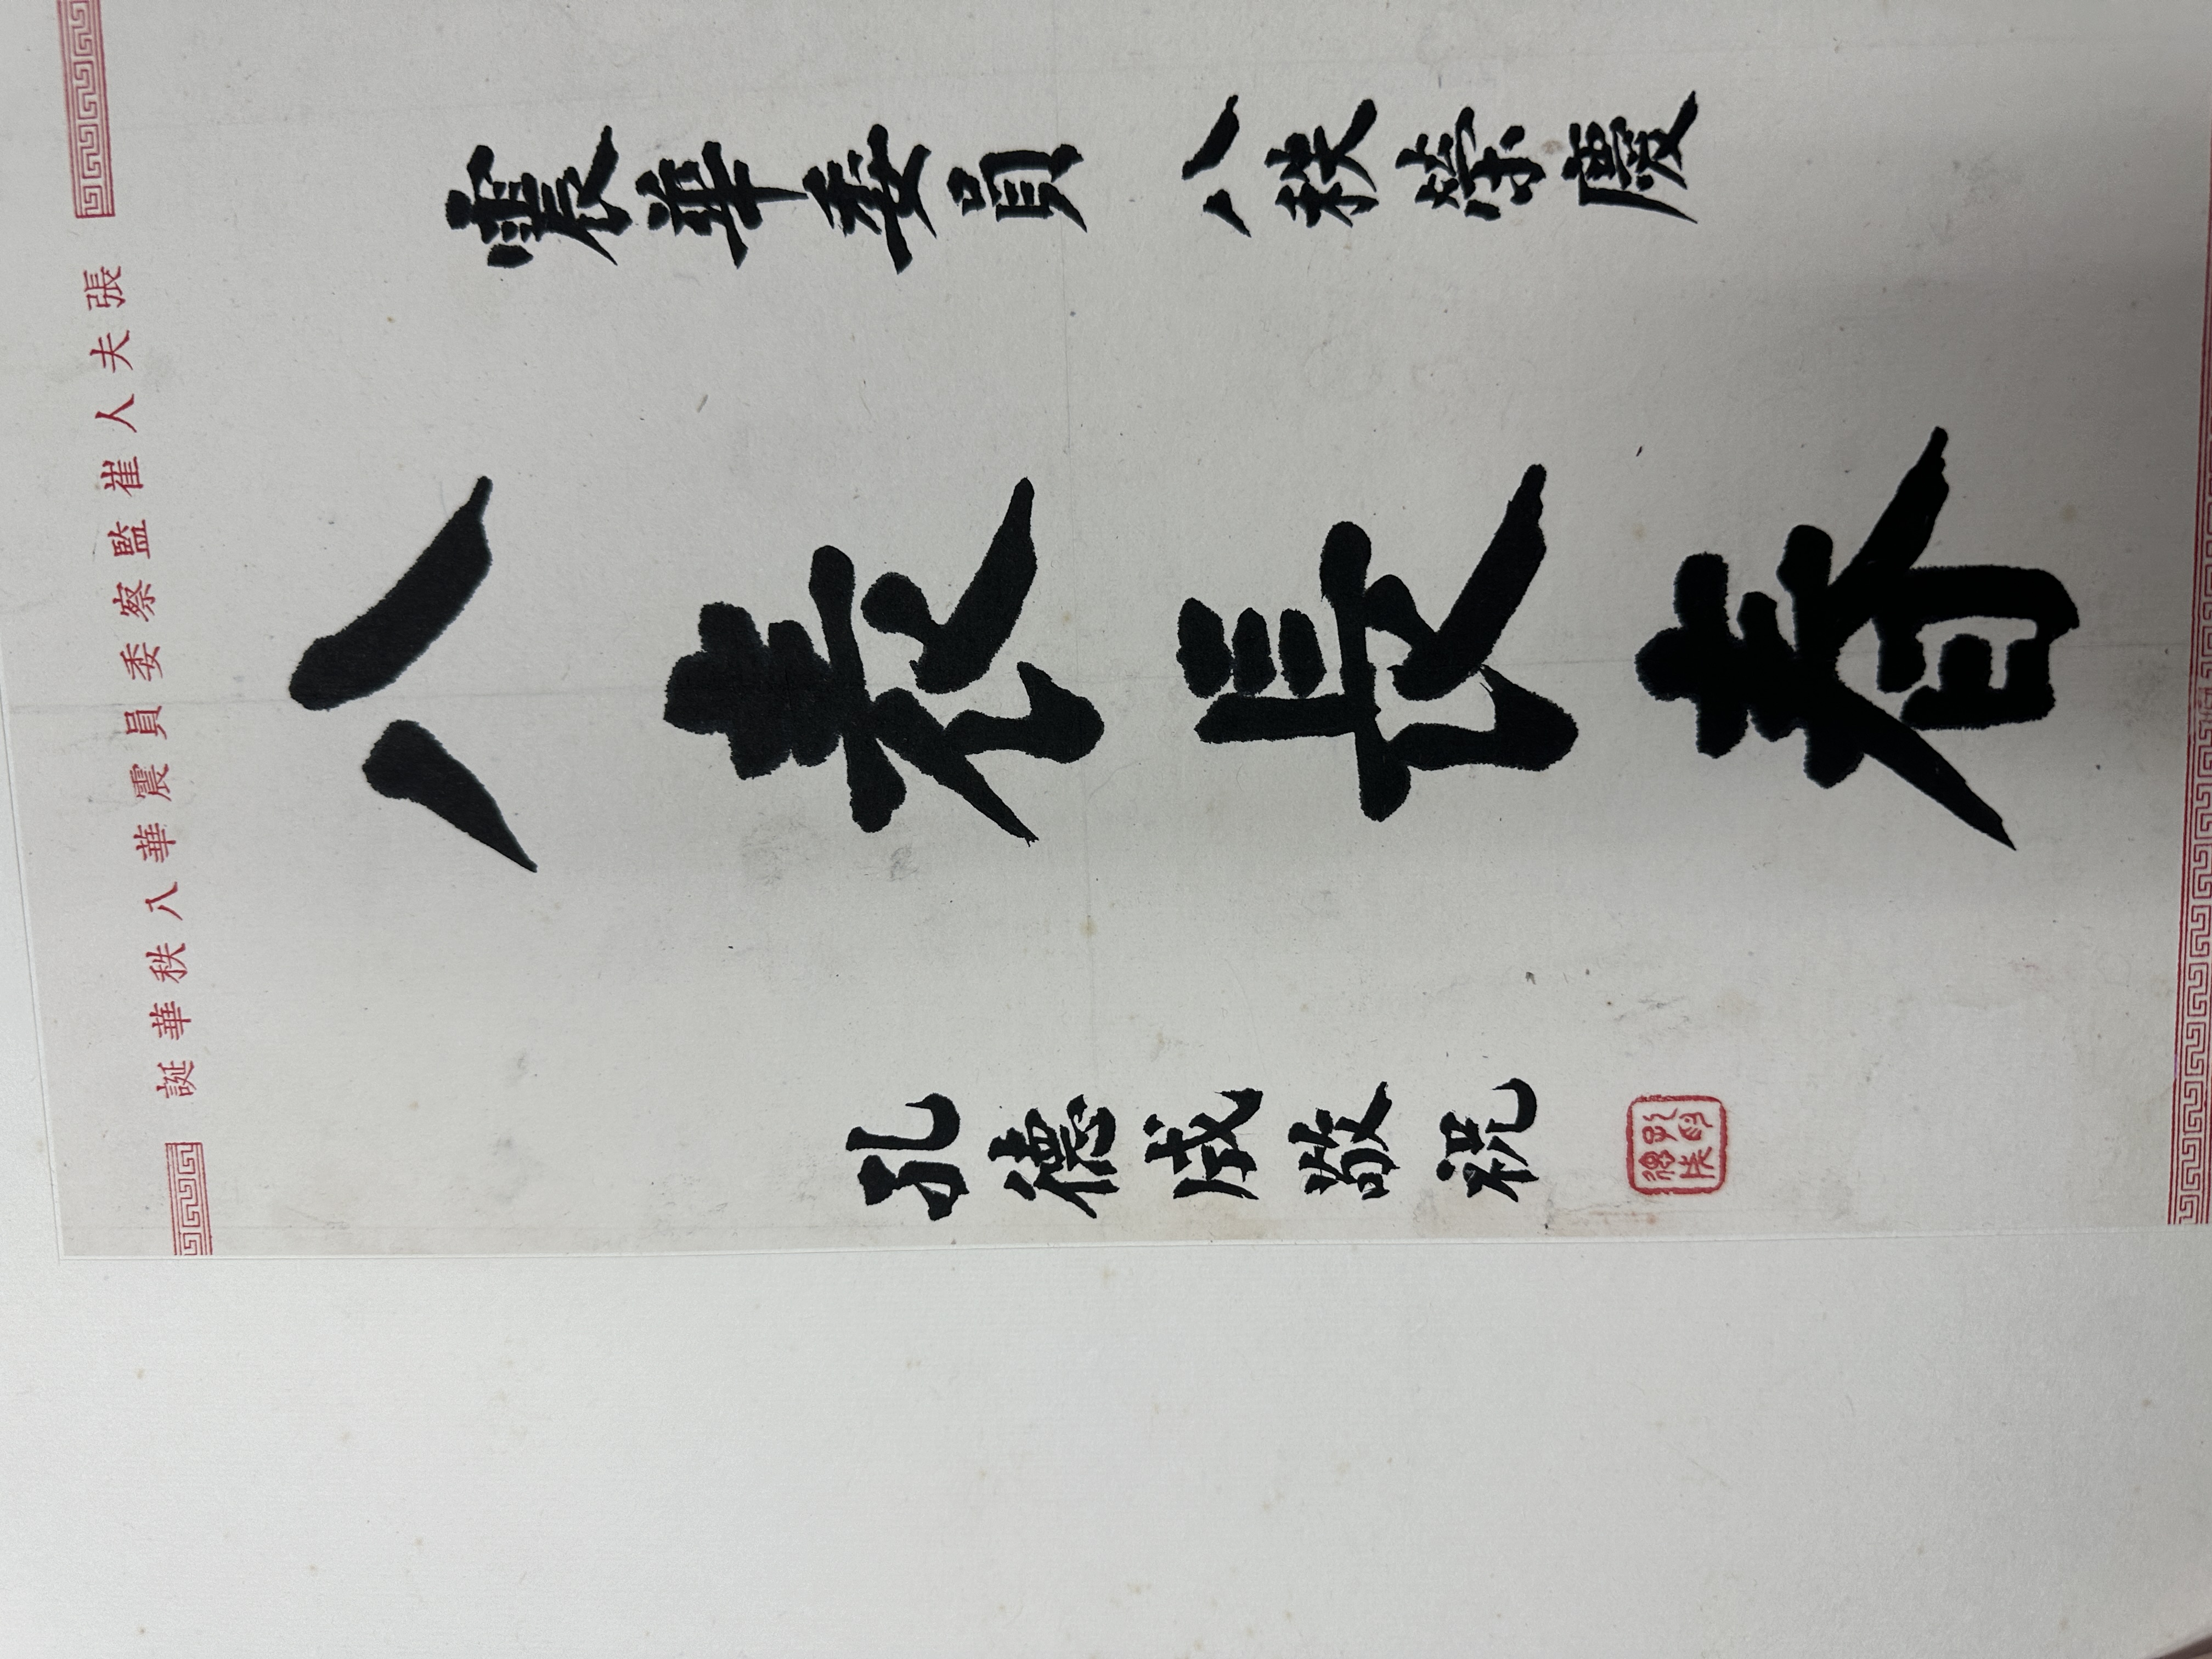 張夫人崔監察委員震華八秩華誕
震華委員 八秩榮慶
八表長春
孔德成敬祝
孔德成印